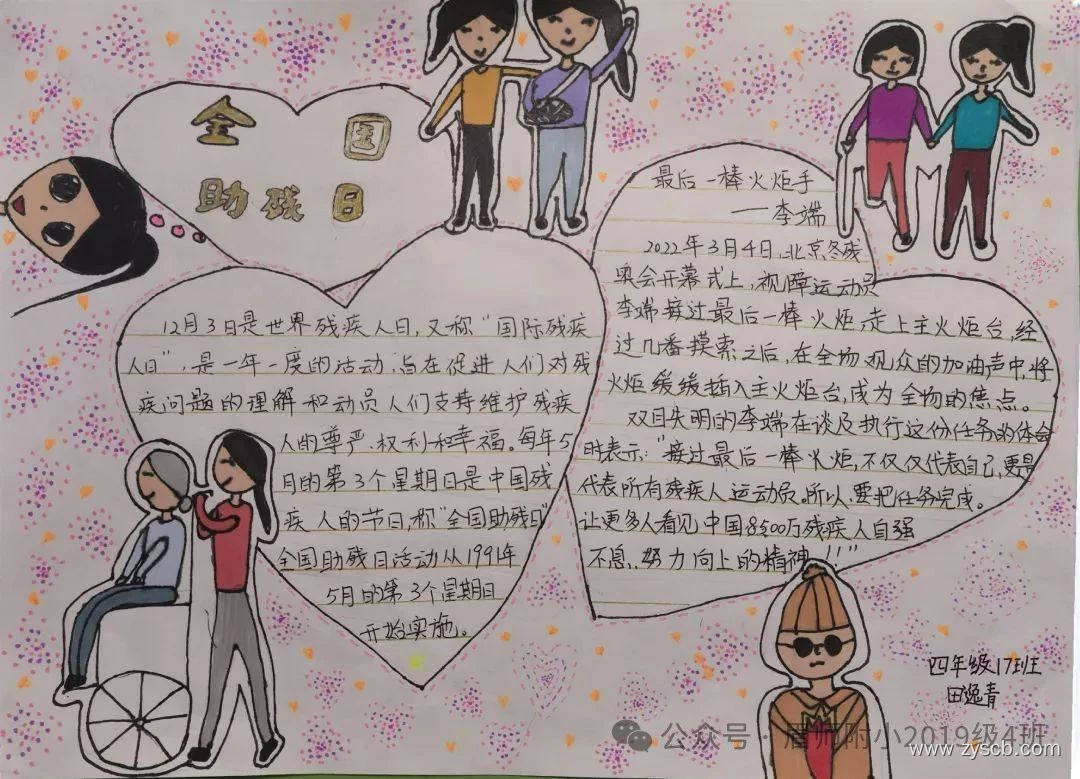 全国
助残日
12月3日是世界残疾人日,又称“国际残疾
人日”,是一年一度的活动,旨在促进人们对残
疾问题的理解和动员人们支持维护残疾
人的尊严、权利和幸福。每年5
月的第3个星期日是中国残
疾人的节日,称“全国助残日”
全国助残日活动从1991年
5月的第3个星期日
开始实施。
最后一棒火炬手
——李端
2022年3月4日,北京冬残
奥会开幕式上,视障运动员
李端接过最后一棒火炬,走上主火炬台,经
过几番摸索之后,在全场观众的加油声中,将
火炬缓缓插入主火炬台,成为全场的焦点。
双目失明的李端在谈及执行这份任务的体会
时表示:“接过最后一棒火炬,不仅仅代表自己,更是
代表所有残疾人运动员。所以,要把任务完成。
让更多人看见中国8500万残疾人自强
不息,努力向上的精神!!”
四年级17班
田逸青
公众号·眉师附小2019级4班
www.zyscb.com